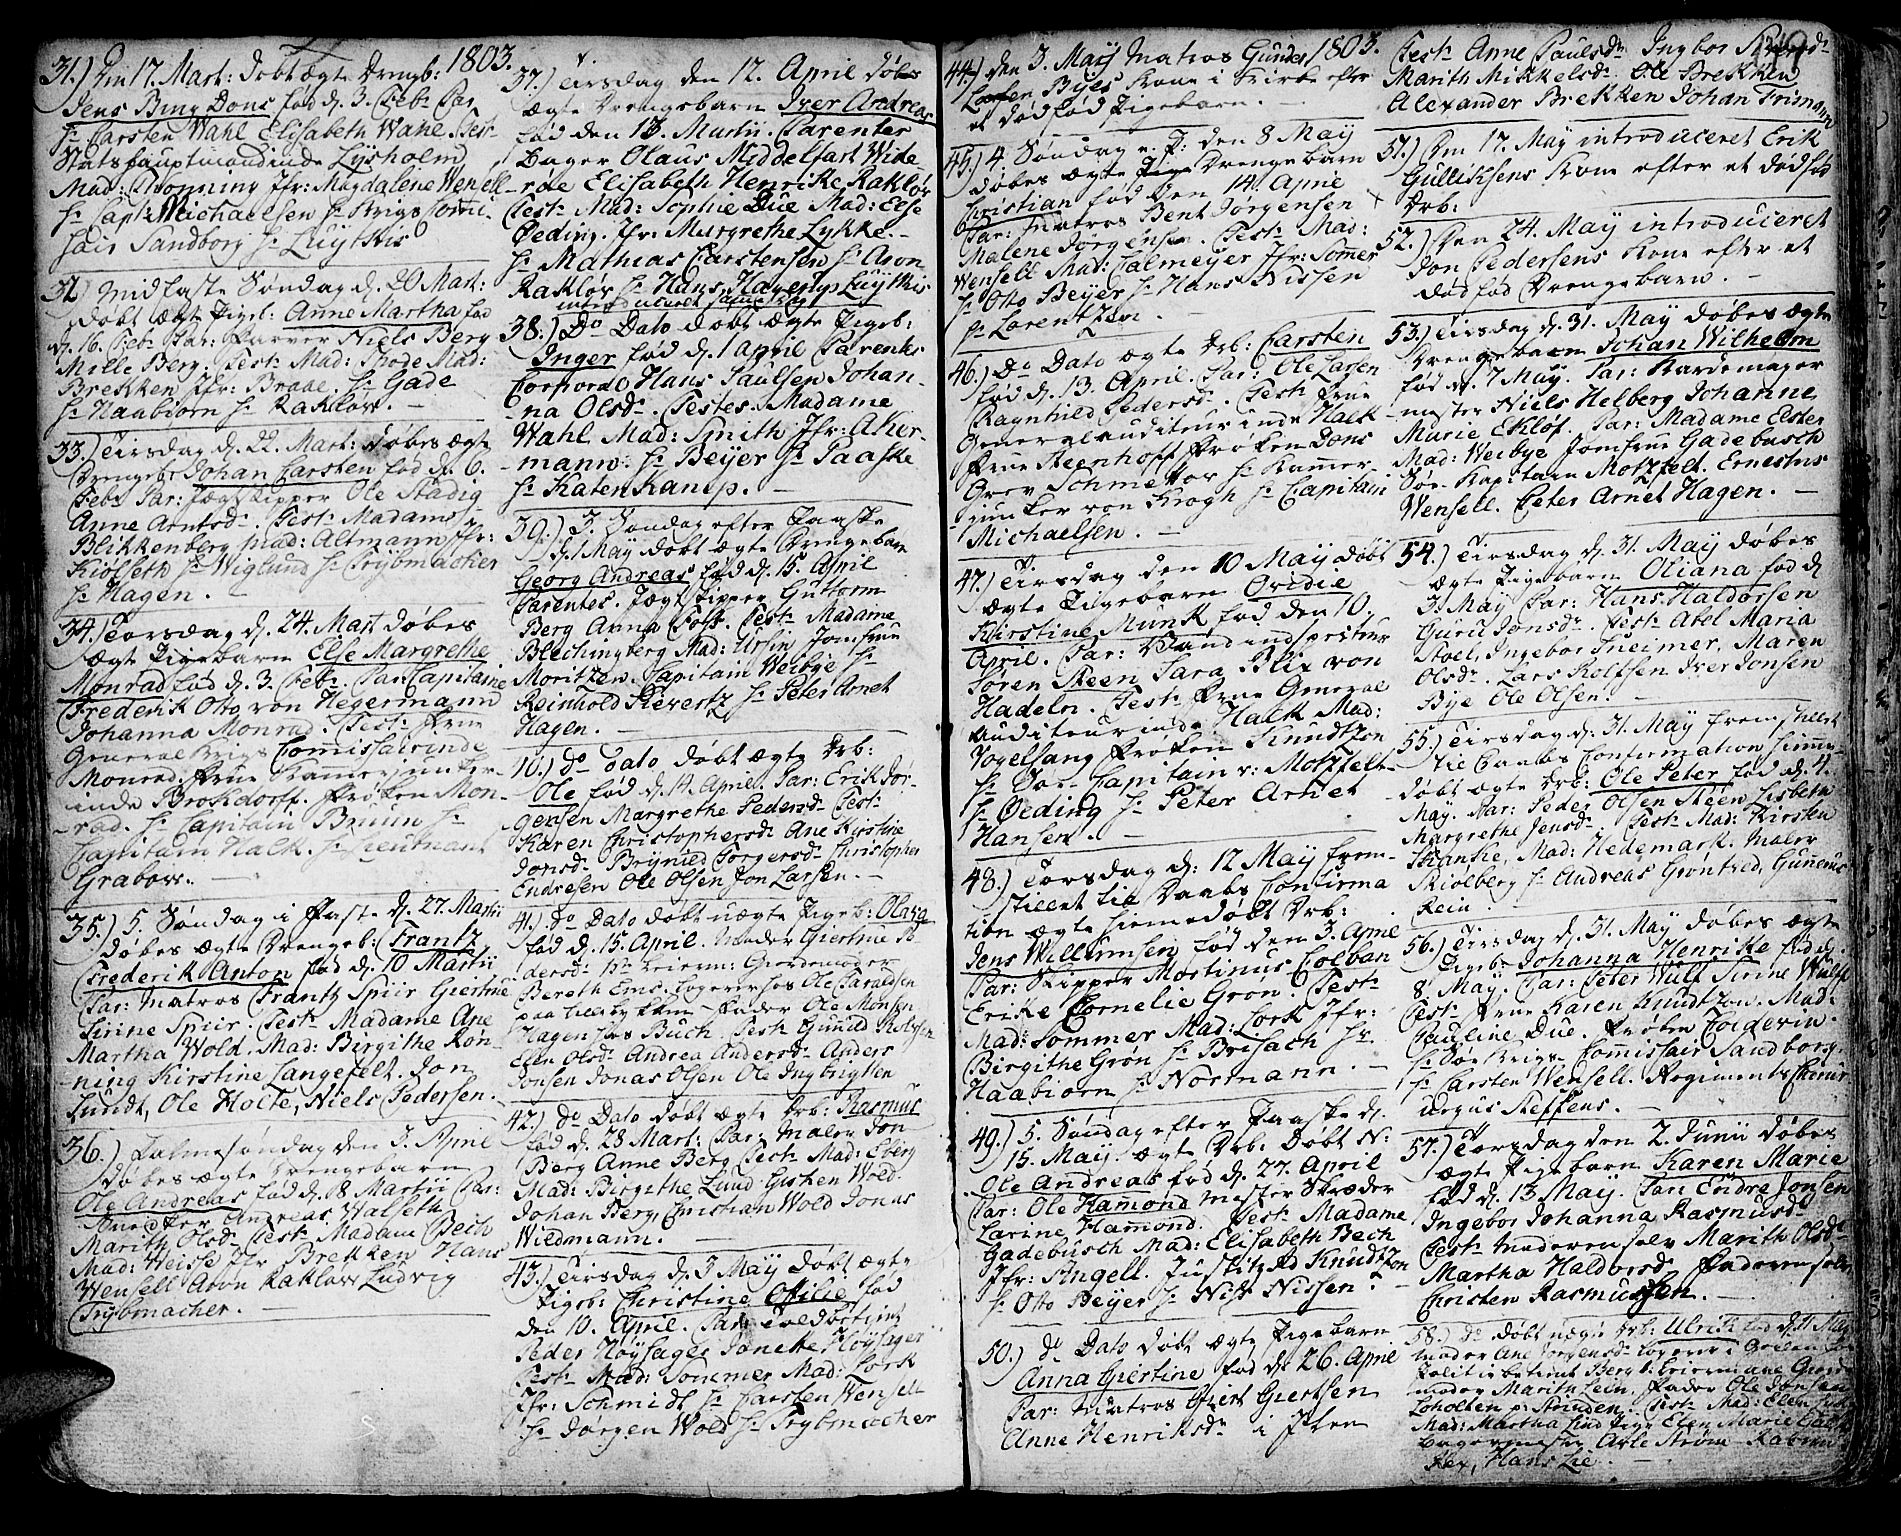 1803.
31.) Dm 17. Mart: Døbt ægte Drengb:
Jens Bing Dons fød d. 3. Febr Par
Hr Carsten Wahl Elisabeth Wahl Test
Statshauptmandinde Lysholm
Mad: Thonning Jfr: Magdalene Wensell
Hr Capt: Michaelsen Hr Krigs Comi-
sair Sandborg Hr Luytkis
32.) Midfaste Søndag d. 20 Mart:
døbt ægte Pigeb: Anne Martha fød
d. 16. Feb: Par: Farver Niels Berg
Mille Berg. Test: Mad: Thode Mad:
Brekken Jfr: Brade. Hr Gade
Hr Haabiorn Hr Rakløv. —
33.) Tirsdag d. 22. Mart: Døbes ægte
Drengeb: Johan Carsten fød d. 6.
Febr Par: Jægtskipper Ole Stadig
Anne Arntsdr. Testr Madams
Blikkenberg Mad: Altmann Jfr:
Kiølseth Hr Wiglund Hr Trybmacher
Hr Hagen. —
34.) Torsdag d. 24. Mart døbes
ægte Pigebarn Else Margrethe
Monrad fød d. 3. Febr. Par. Capitaine
Frederik Otto von Hegermann
Johanna Monrad. Test: Frue
General Krigs Commissairinde
Monrad. Frue Kammerjunker-
inde Brokdorff. Frøken Mon-
rad. Hr Capitain Bruun Hr
Capitain Halk. Hr Lieutnant
Grabow. —
35.) 5. Søndag i Faste d. 27. Martii
døbes ægte Drengeb: Frantz
Frederik Anton fød d. 10 Martii
Par: Matros Frantz Spiir Giertrue
Sirine Spiir. Testr Madame Ane
Martha Wold, Mad: Birgithe Kon-
ning Kirstine Langefelt. Jon
Lundt, Ole Holte, Niels Pedersen.
36.) Palmesøndag den 3. April
døbes ægte Drengebarn
Ole Andreas fød d. 18 Martii Par:
Andreas Walseth
Marith Olsdr Testr Madam Bech
Mad: Weisse Jfr Brekken Hans
Wensell Aron Rakløw Ludvig
Trybmacher. —
37.) Tirsdag den 12. April døbes
ægte Drengebarn Iver Andreas
fød den 13. Martii. Parenter
Bager Olaus Middelfart Wide
-røe Elisabeth Henrike Rakløv
Testr Mad: Sophie Due Mad: Else
Øeding. Jfr: Margrethe Lykke. —
Hr Mathias Carstensen Hr Aron
Rakløv Hr Hans Havertp Luythis
introduceret samme dag
38.) Do Dato døbt ægte Pigeb:
Inger fød d. 1 April Parentes
Corporal Hans Paulsen Johan-
na Olsdr. Testes. Madame
Wahl Mad: Smith Jfr: Aker-
mann. Hr Beyer Hr Paaske
Hr Katenkamp. —
39.) 3. Søndag efter Paaske
d. 1 May døbt ægte Drengebarn
Georg Andreas fød d. 15. April
Parentes. Jægtskipper Guttorm
Berg Anna Foss. Testr Madame
Blechingberg Mad: Ursin Jomfrue
Moritzen. Capitain Weibye Hr
Reinhold Sievertz Hr Peter Arnet
Hagen. —
40.) do dato døbt ægte Drb:
Ole fød d. 14 April. Par: Erik Jør-
gensen Margrethe Pedersdr Testr
Karen Christophersdr Ane Kirstine
Jonsdr Brynild Torgersdr Christopher
Endresen Ole Olsen Jon Larsen. —
41.) do Dato døbt uægte Pigeb: Olava
fød d. 15. April. Moder Giertrue Pe-
dersdr 1ste Leierm: Giordemoder
Bereth Ems. Logerer hos Ole Haraldsen
paa Ilesbykam. Fader Ole Monsen
Hagen hos Buch. Testr Gunild Rolfsdr
Elen Olsdr Andrea Andersdr Anders
Jonsen Jonas Olsen Ole Ingbrigtsen
42.) do Dato døbt ægte Drb: Rasmus
fød d. 28 Mart: Par: Maler Jon
Berg Anne Berg Testr Mad: Eberg
Mad: Birgithe Lund Gisken Wold.
Johan Berg, Christian Wold Jonas
Wiedmann.
43.) Tirsdag d. 3 May døbt ægte
Pigeb: Christine Otilie fød
den 10. April. Par: Toldbetient
Peder Høysager Janeke Høysager
Testr Mad: Sommer Mad: Lork
Jfr: Schmidt Hr Carsten Wensell
Hr Jørgen Wold Hr Trybmacher
1803.
44.) den 3. May Matros Gunder
Larsen Byes Kone i Kirke efter
et dødfød Pigebarn. —
45.) 4. Søndag e. P: den 8 May
døbes ægte Drengebarn
Christian fød den 14. April
Par: Matros Bent Jørgensen
Malene Jørgensen. Testr Mad:
Wensell Mad: Calmeyer Jfr: Somer
Hr Otto Beyer Hr Hans Nissen
Hr Lorentzen.
46.) Do Dato ægte Drb: Carsten
fød d. 13. April. Par: Ole Larsen
Ragnhild Pedersdr. Testr Frue
Generalauditeurinde Halk
Frue Steenhoff Frøken Dons
Grev Schmettov Hr Kammer-
junker von Krogh Hr Capitain
Michaelsen. —
47.) Tirsdag den 10 May døbt
ægte Pigebarn Ovidie
Kirstine Munk fød den 10.
April. Par: Vandinspecteur
Søren Steen Sara Blix von
Hadeln. Testr Frue General
Auditeurinde Halk Mad:
Vogelsang Frøken Knudtzon
Hr Søe-Capitain v: Motzfelt
Hr Øeding Hr Peter Arnet
Hansen. —
48.) Torsdag d. 12 May frem-
stillet til Daabs Confirma
tion ægte hiemmedøbt Drb:
Jens Willumsen fød den 3. April
Par: Skipper Mortinus Colban
Erike Cornelie Gron. Testr
Mad: Sommer Mad: Lork Jfr:
Birgithe Gron Hr Brisach Hr
Haabiorn Hr Normann. —
49.) 5. Søndag efter Paaske d.
15. May. ægte Drb: Døbt N:
Ole Andreas fød d. 27. April
Par: Ole Hamond Mester Skræder
Larine Hamond. Testr Madame
Gadebusch Mad: Elisabeth Bech
Jfr: Angell. Justitzrd Knudtzon
Hr Otto Beyer Hr Niss Nissen. —
50.) do Dato døbt ægte Pigebarn
Anna Giertine fød d. 26. April
Par: Matros Giert Giertsen
Anne Henriksdr i Ihlen
Testr Anne Paulsdr Ingbor
Marith Mikkelsdr. Ole Brekken
Alexander Brekken Johan Frismann
51.) Dm 17. May introduceret Erik
Gulliksens Kone efter et dødfød
Drb:
52.) Dm 24. May introduceret
Jon Pedersens Kone efter et
dødfød Drengebarn. —
53.) Tirsdag d. 31. May døbes ægte
Drengebarn Johan Wilhelm
fød d. 7 May. Par: Kardemager
mester Niels Helberg Johanne
Marie Ekløf. Par: Madame Elster
Mad: Weibye Jomfrue Gadebusch
Søe-Kapitain Motzfelt. Ernestus
Wensell. Peter Arnet Hagen. —
54.) Tirsdag d. 31. May døbes
ægte Pigebarn Oliana fød d.
3. May Par: Hans Haldorsen
Guru Jonsdr. Testr Abel Maria
Stoel, Ingebor Sneimer, Maren
Olsdr. Lars Rolfsen Iver Jonsen
Bye Ole Olsen. —
55.) Tirsdag d. 31. May fremstillet
til Daabs Confirmation hiemme-
døbt ægte Drb: Ole Peter fød d. 4.
May. Par: Peder Olsen Steen Lisbeth
Margrethe Jensdr. Testr Mad: Kirsten
Skanke, Mad: Hedemark. Maler
Skiølberg Hr Andreas Grøntved, Gunerius
Rein.
56.) Tirsdag d. 31. May døbes ægte
Pigeb: Johanna Henrike fød d.
8 May. Par: Peter Wulf Sirine Wulf
Testr Frue Karen Knudtzon. Mad:
Pauline Due. Frøken Colderin.
Hr Søe Krigs Commissair Sandborg.
Hr Carsten Wensell. Regiments Chirur
urgus Steffens. —
57.) Torsdag den 2. Junii døbes
ægte Pigebarn Karen Marie
fød d. 13 May. Par: Endre Jonsen
Ingebor Johanna Rasmusdr
Testr Moderen selv Marith Olsdr
Martha Haldorsdr Faderen selv,
Christen Rasmussen. —
58.) do døbt uægte Drb: Ulrik fød d. 11 May
Moder Ane Jørgensdr
Politibetient Berg 1. Leierm:
moder Marith Lein. Fader Ole Jonsen
Loholten p: Strinden. Testr Mad: Elen
Mad: Martha Lind Pige Elen Marie
Bagermester Arle Strøm
Hans Lie.